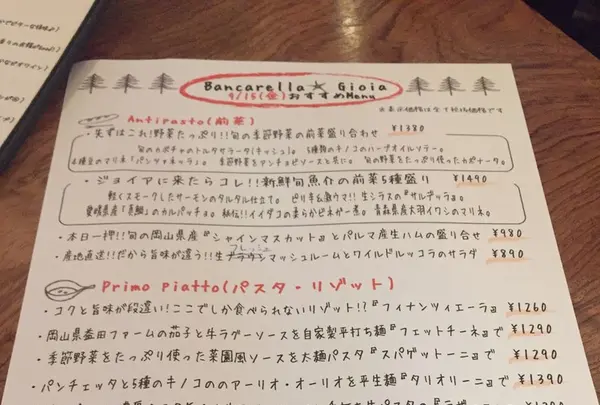 Bancarella☆Gioia
9/15(金)おすすめMenu
※表示価格は全て税抜価格です
Antipasto(前菜)
・先ずはこれ!野菜たっぷり!!旬の季節野菜の前菜盛り合わせ ¥1380
旬のカボチャのトルタサラータ(キッシュ)。 5種類のキノコのハーブオイルソテー。
4種豆のマリネ『パンツァネッラ』。 季節野菜をアンチョビソースと共に。 旬の野菜をたっぷり使ったカポナータ。
・ジョイアに来たらコレ!!新鮮旬魚介の前菜5種盛り ¥1490
軽くスモークしたサーモンのタルタル仕立て。 ピリ辛&激ウマ!!生シラスの『サルデッラ』。
愛媛県産『真鯛』のカルパッチョ。 秘伝!!イイダコの柔らかビネガー煮。 青森県産大羽イワシのマリネ。
・本日一押!!旬の岡山県産『シャインマスカット』とパルマ産生ハムの盛り合せ ¥980
・産地直送!!だから旨味が違う!!生フレッシュマッシュルームとワイルドルッコラのサラダ ¥890
Primo Piatto(パスタ・リゾット)
・コクと旨味が段違い!ここでしか食べられないリゾット!?『フィナンツィエーラ』 ¥1260
・岡山県益田ファームの茄子と牛ラグーソースを自家製平打ち麺『フェットチーネ』で ¥1290
・季節野菜をたっぷり使った菜園風ソースを太麺パスタ『スパゲットーニ』で ¥1290
・パンチェッタと5種のキノコのアーリオ・オーリオを平生麺『タリオリーニ』で ¥1390